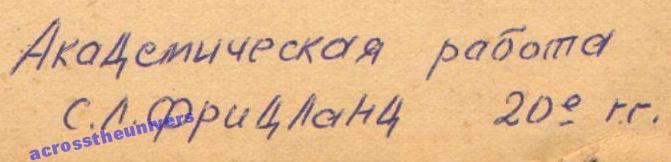 Академическая работа
С.Л.Фрицланд 20е г.г.
acrosstheunivers